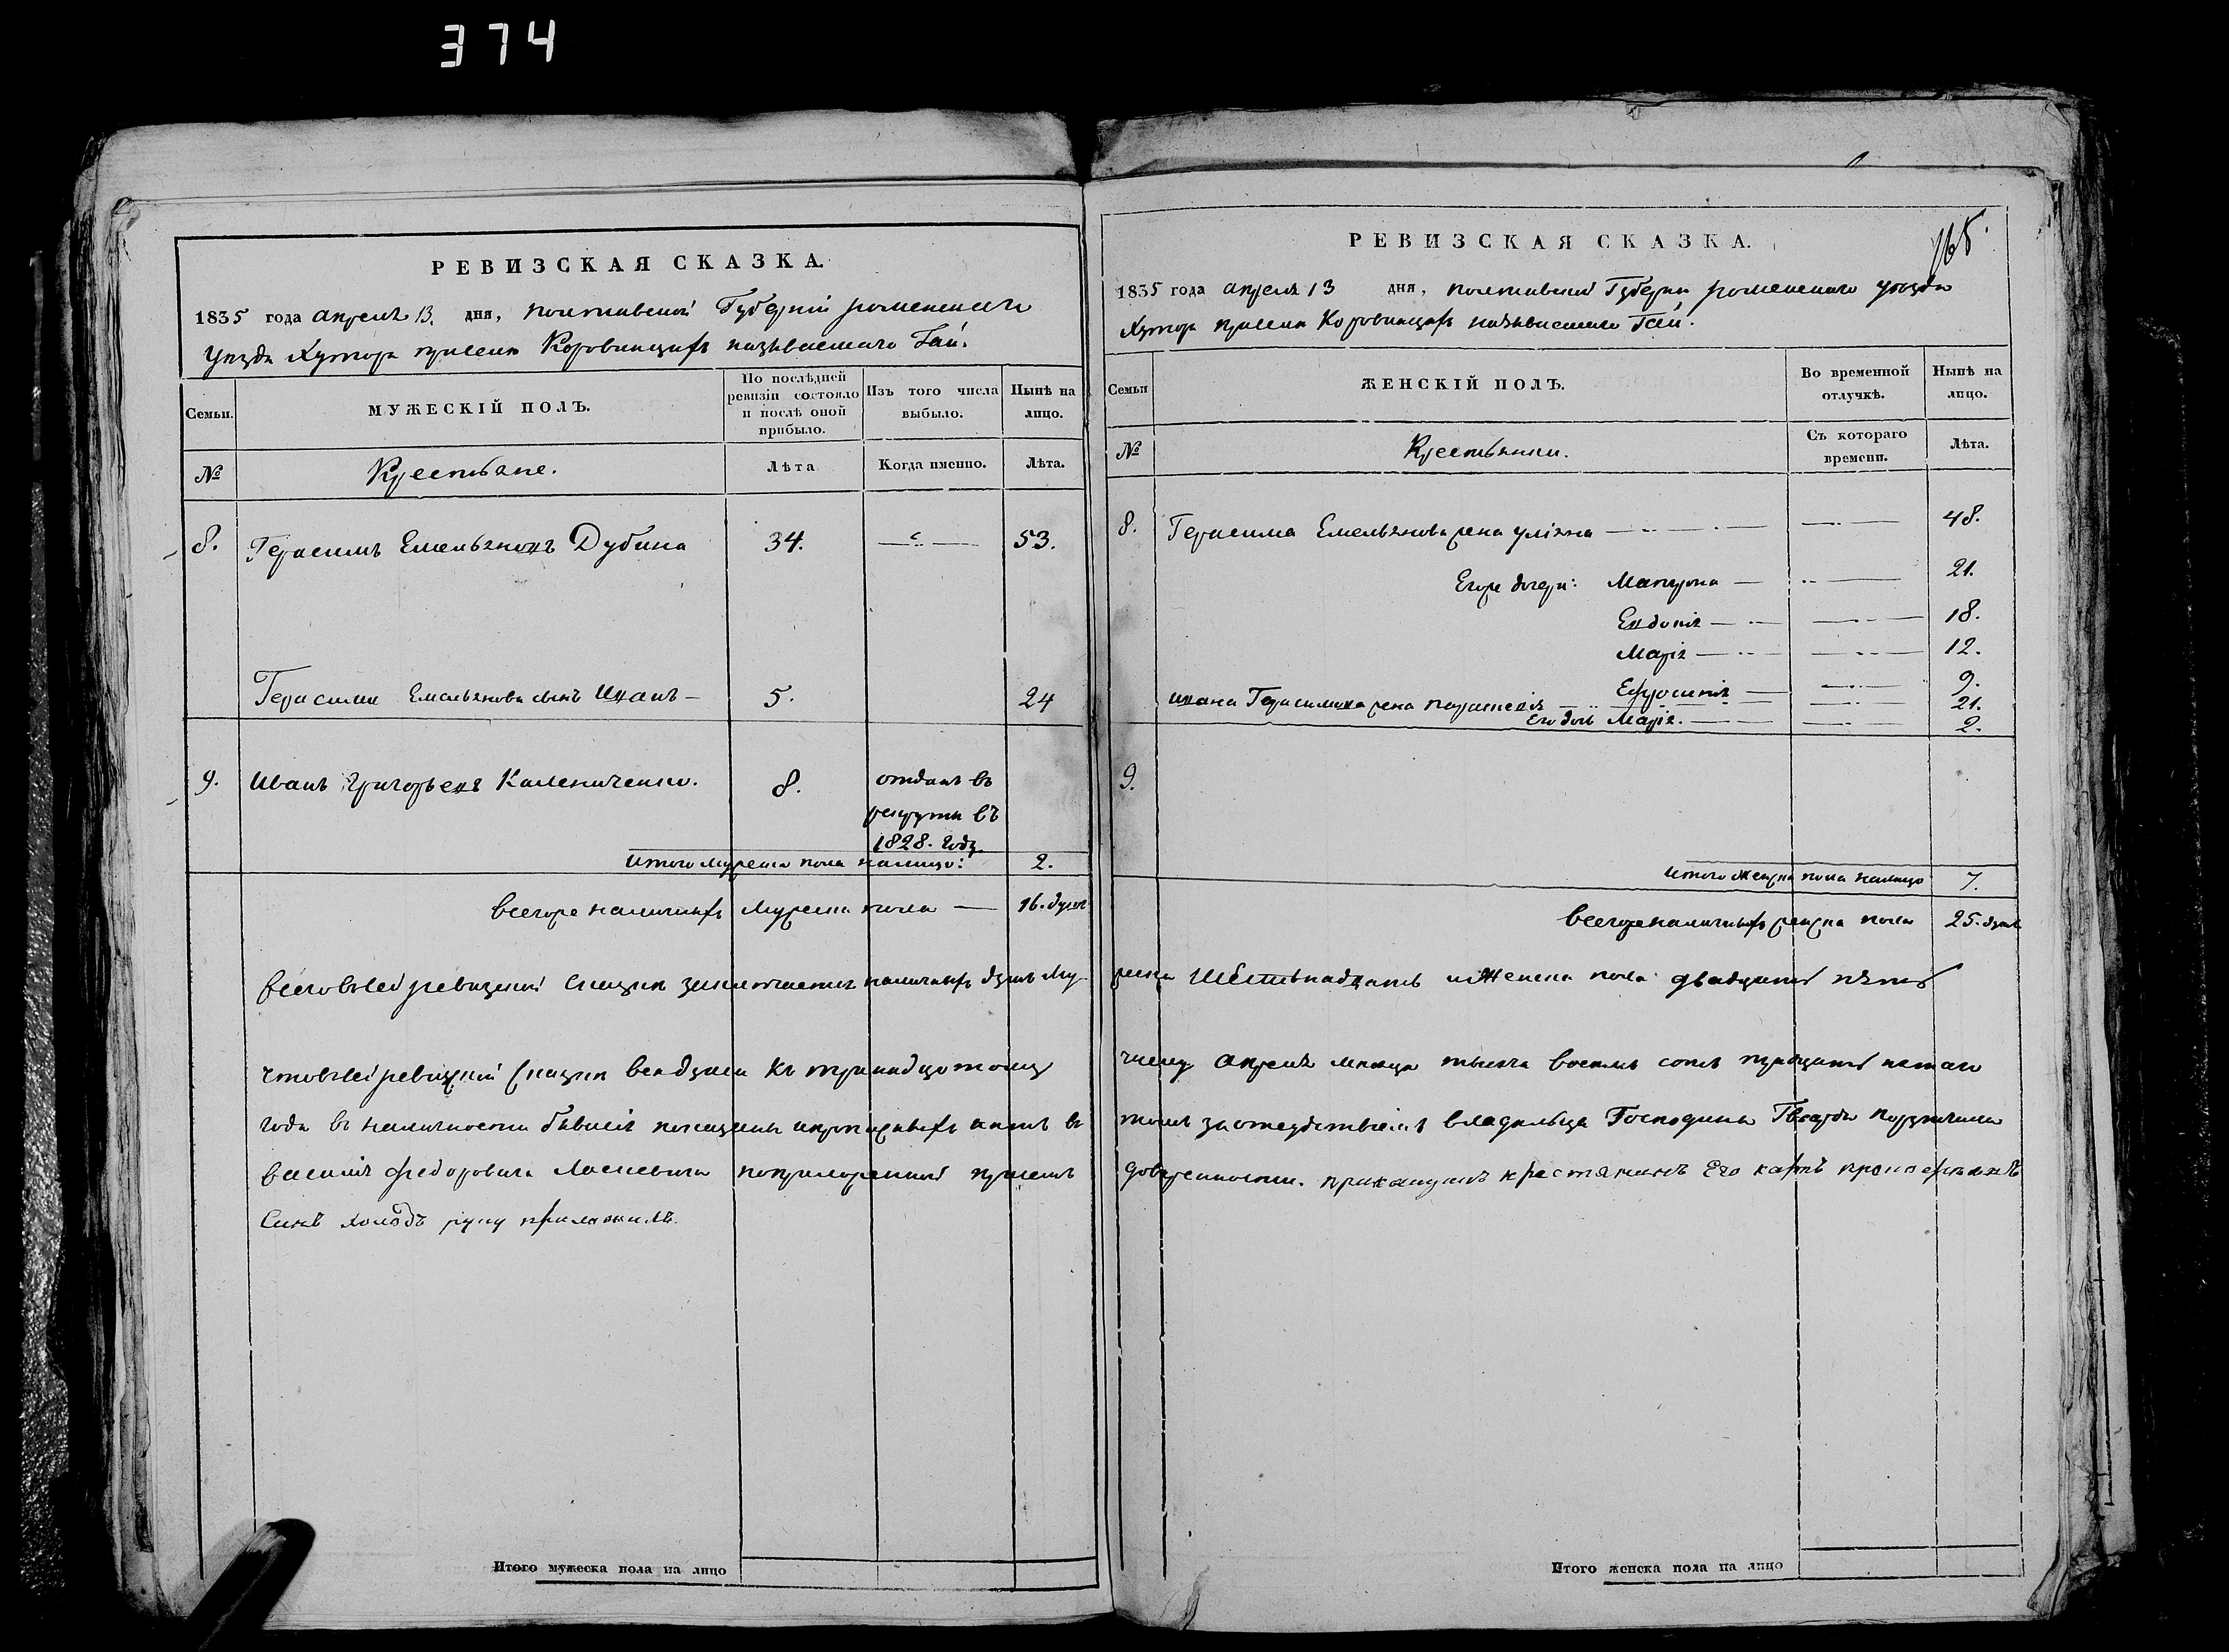 374
РЕВИЗСКАЯ СКАЗКА.
1835 года апреля 13. дня, полтавской Губернии роменского
уезда Хутора прилеги Коровинцахъ называемаго Гай.
Семьи.
МУЖЕСКІЙ ПОЛЪ.
По послѣдней ревизіи состояло и послѣ оной прибыло.
Изъ того числа выбыло.
Нынѣ на лицо.
№
Крестьяне.
Лѣта
Когда именно.
Лѣта.
8. Герасимъ Емельяновъ Дубина 34. 53.
Герасима Емельянова сынъ Иванъ 5. 24
9. Иванъ Григорьевъ Калениченко. 8. отданъ въ
рекруты въ
1828. году
итого мужеска пола налицо: 2.
всегоже наличныхъ мужеска пола 16. душъ
всего въ сей ревизской сказки заключается наличныхъ душъ му
что въ сей ревизской сказки все души къ тринадцатому
года въ наличности бывшія показаны и прописныхъ нетъ в
василія федоровича поприложенной
Синъ холодъ руку приложилъ.
Итого мужеска пола на лицо
РЕВИЗСКАЯ СКАЗКА.
165.
1835 года апреля 13 дня, полтавской Губернии роменского уезда
Хутора Коровинцахъ называемаго Гай.
Семьи
ЖЕНСКІЙ ПОЛЪ.
Во временной отлучкѣ.
Нынѣ на лицо.
№
Крестьянки.
Съ котораго времени.
Лѣта.
8. Герасима Емельянова жена уліяна 48.
Егоже дочери: Матрона 21.
Евдокія 18.
Марія 12.
Ефросинія 9.
ивана Герасимова жена параскевія 21.
Его дочь Марія. 2.
9.
итого женска пола налицо 7.
всегоже наличныхъ женска пола 25. душъ
жеска Шестьнадцать и Женска пола двадцать пять
числу апреля месяца тысяча восемь сотъ тридцать пятаго
томъ за отсудствіемъ владельца Господина Гвардіи порутчика
доверенности. крестянинъ Его
Итого женска пола на лицо